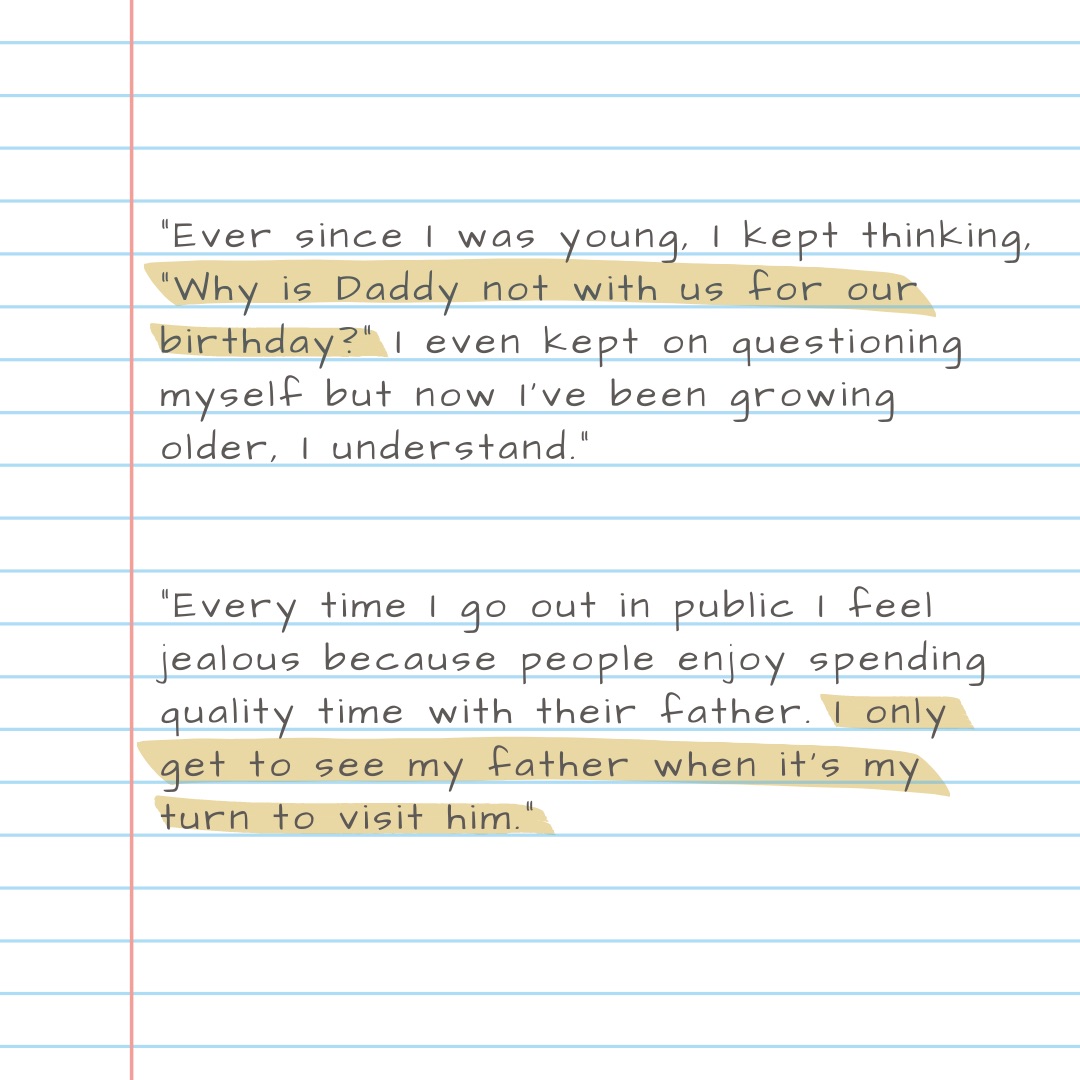 "Ever since I was young, I kept thinking,
"Why is Daddy not with us for our
birthday?" I even kept on questioning
myself but now I've been growing
older, I understand."
"Every time I go out in public I feel
jealous because people enjoy spending
quality time with their father. I only
get to see my father when it's my
turn to visit him."